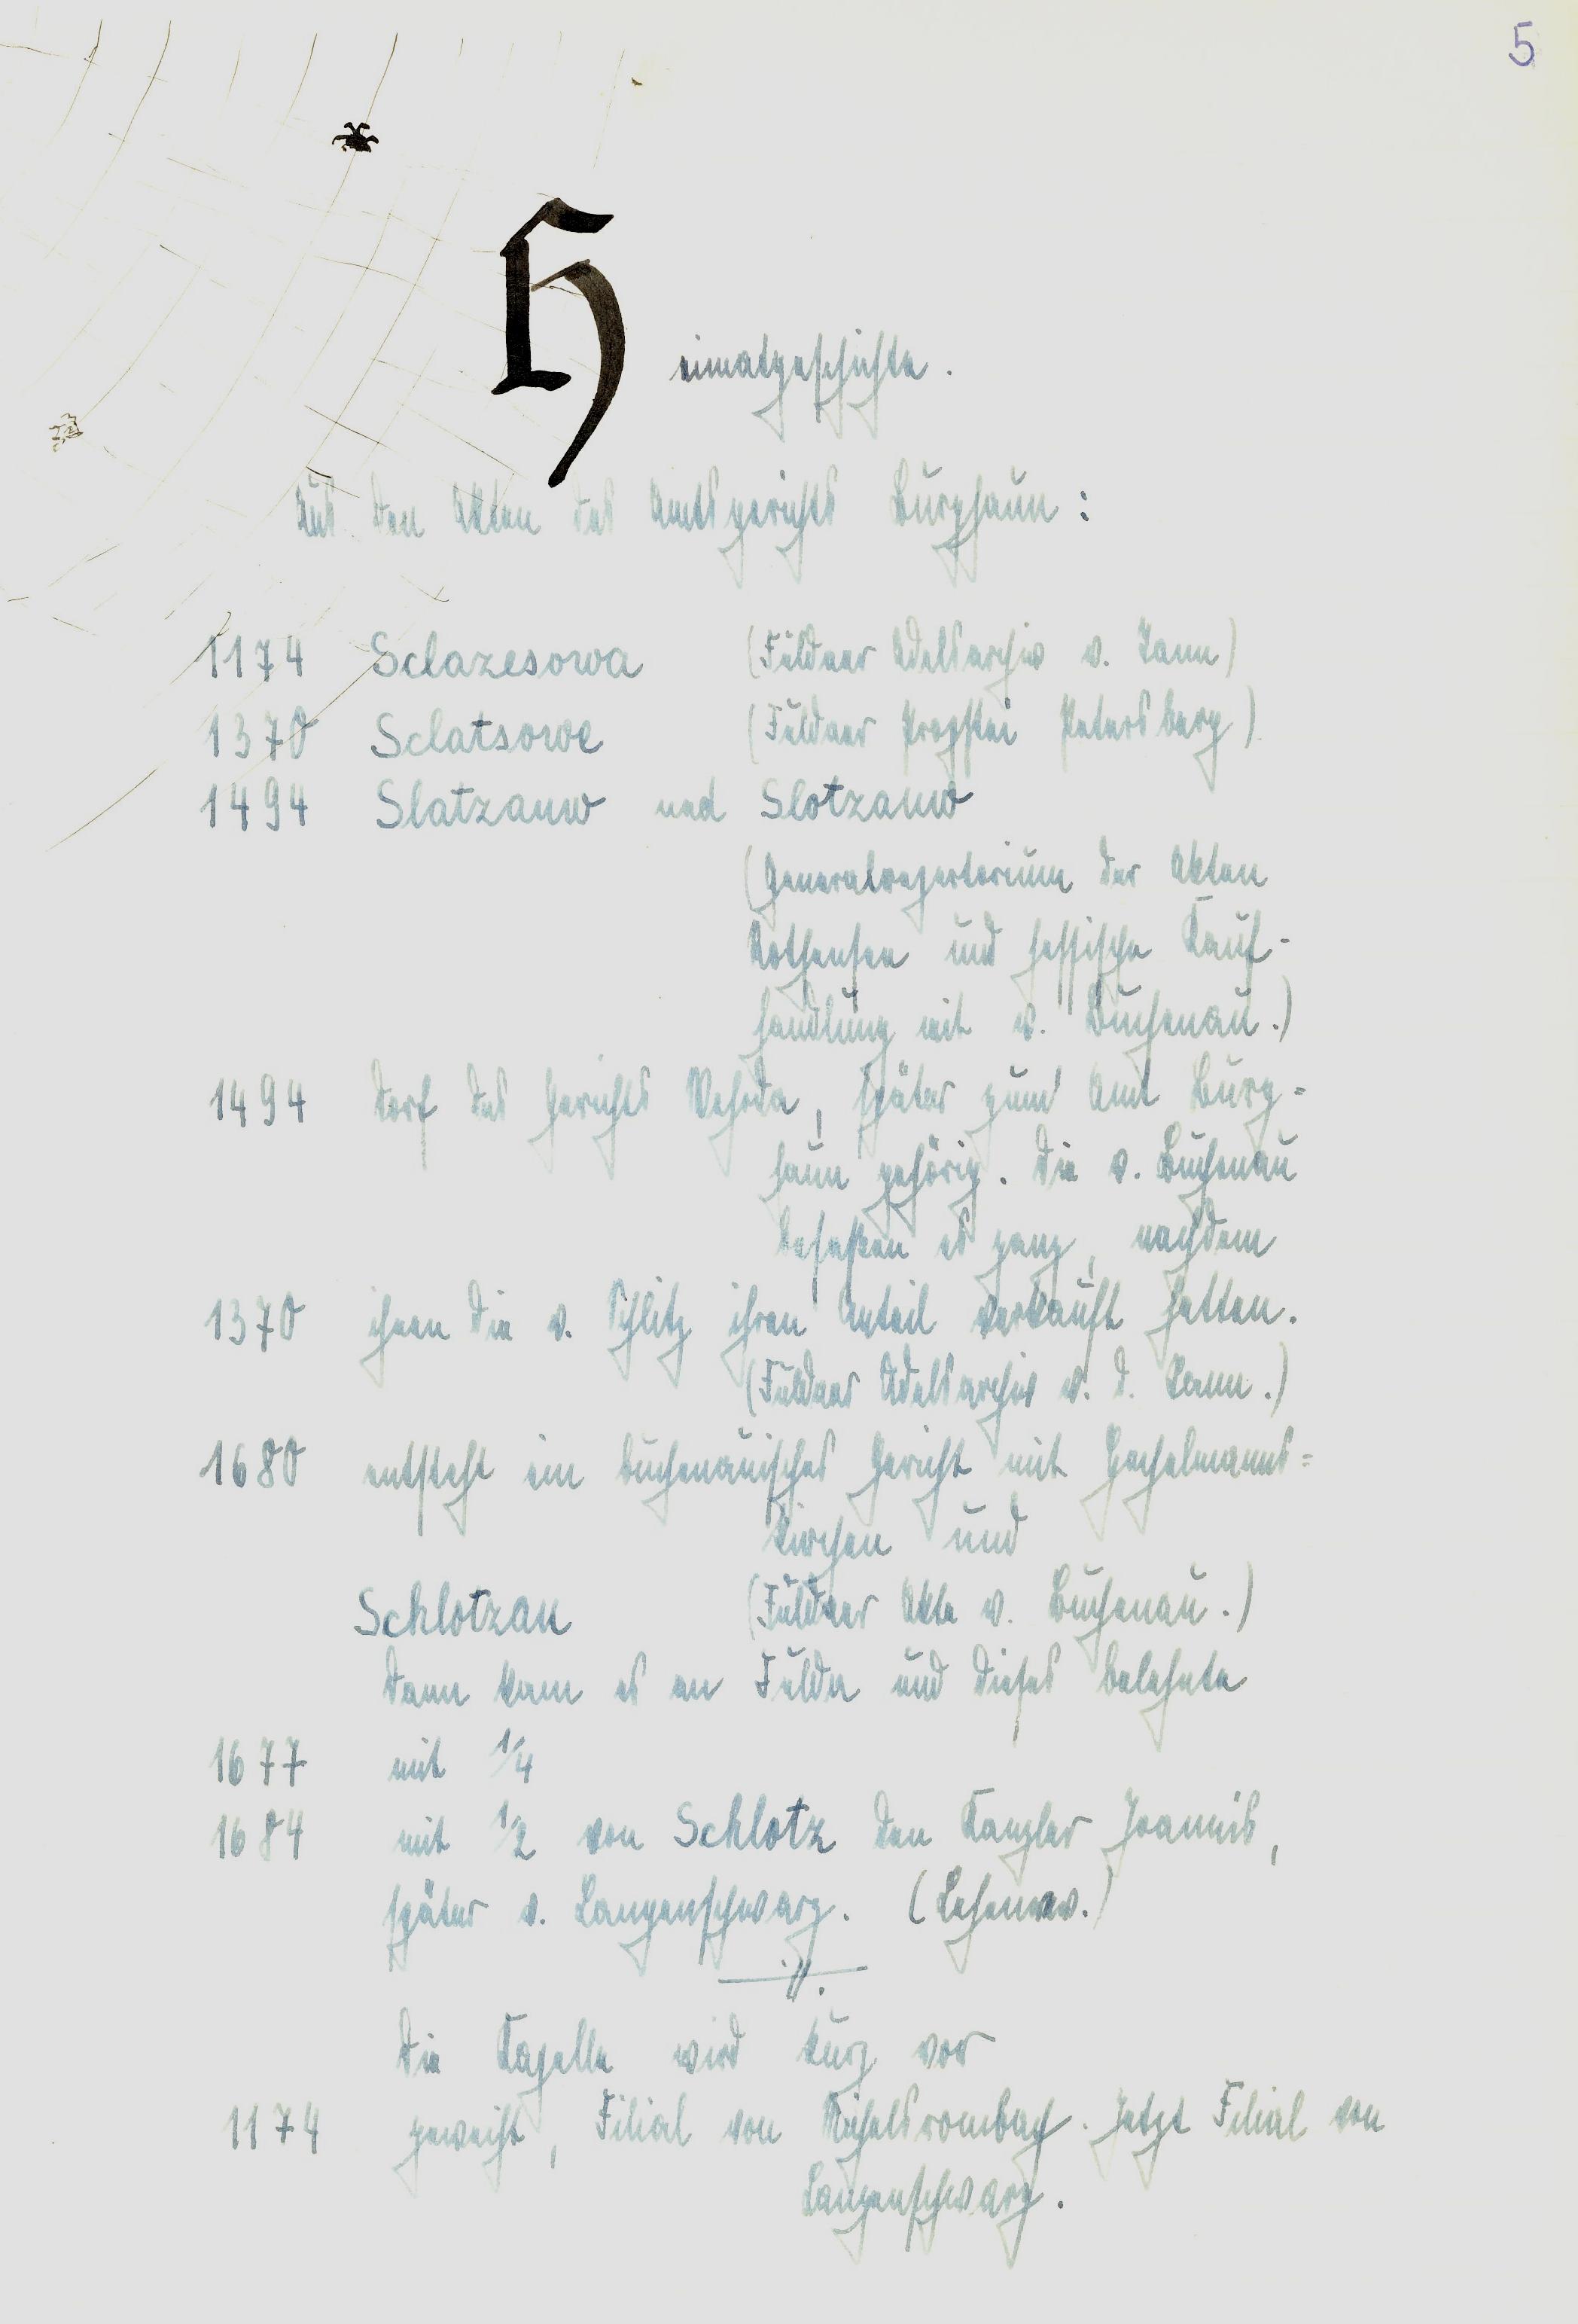 5
Heimatgeschichte.
Aus den Akten des Amtsgerichts Burghaun:
1174 Sclazesowa (Fuldaer Adelsarchiv v. Tann)
1370 Sclatsowe (Fuldaer Propstei Petersberg)
1494 Slatzauw und Slotzauw
(Generalrepertorium der Akten
Rothensee und hessische Kauf-
handlung mit v. Buchenau.)
1494 Dorf des Gerichts Wehrda, später zum Amt Burg-
haun gehörig. Die v. Buchenau
besaßen es ganz, nachdem
1370 ihnen die v. Schlitz ihren Anteil verkauft hatten.
(Fuldaer Adelsarchiv v. d. Tann.)
1680 entsteht ein buchenauisches Gericht mit Hechelmanns-
kirchen und
Schlotzau (Fuldaer Akte v. Buchenau.)
Dann kam es an Fulda und dieses belehnte
1677 mit 1/4
1684 mit 1/2 von Schlotz den Kanzler Joannis,
später v. Langenschwarz. (Lehenrev.)
Die Kapelle wird kurz vor
1174 geweiht, Filial von Michelsrombach. Jetzt Filial von
Langenschwarz.